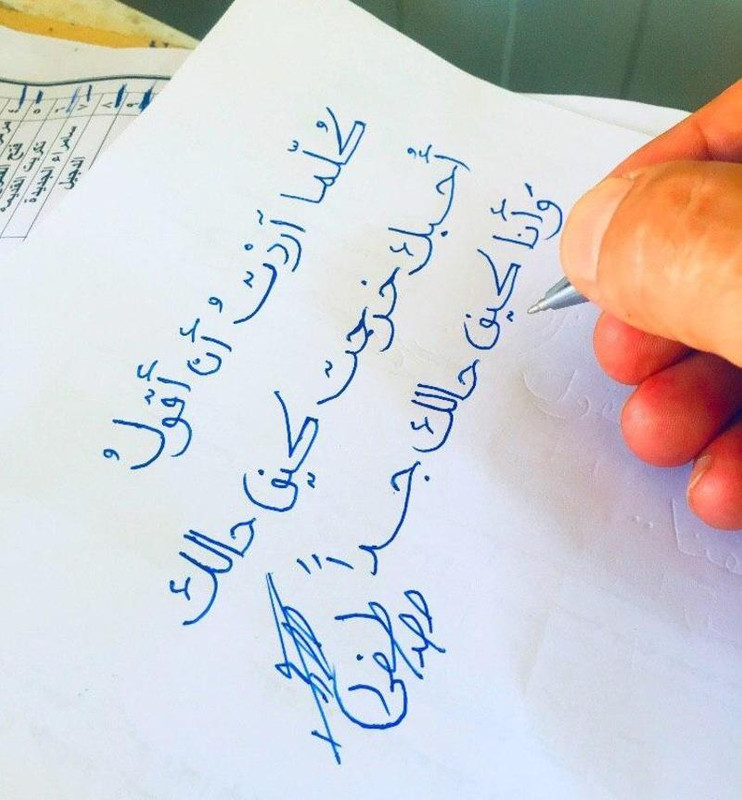 كُلّما أردْتُ أنْ أقولُ
أُحبك خرجت كيف حالك
وَأنا كيف حالك جداً